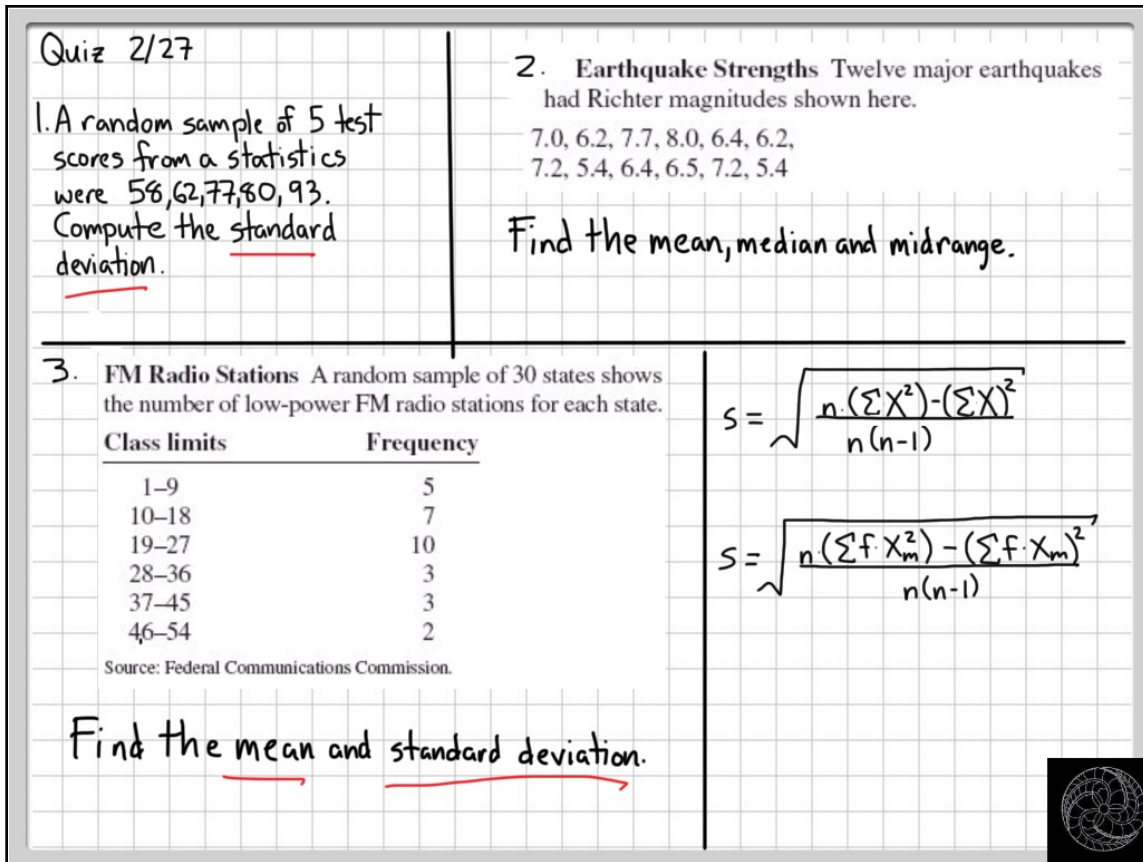 Quiz 2/27
1. A random sample of 5 test
scores from a statistics
were 58, 62, 77, 80, 93.
Compute the standard
deviation.
2. Earthquake Strengths Twelve major earthquakes
had Richter magnitudes shown here.
7.0, 6.2, 7.7, 8.0, 6.4, 6.2,
7.2, 5.4, 6.4, 6.5, 7.2, 5.4
Find the mean, median and midrange.
3. FM Radio Stations A random sample of 30 states shows
the number of low-power FM radio stations for each state.
Class limits Frequency
1–9 5
10–18 7
19–27 10
28–36 3
37–45 3
46–54 2
Source: Federal Communications Commission.
Find the mean and standard deviation.
s = √(n·(ΣX²)-(ΣX)² / n(n-1))
s = √(n·(Σf·Xₘ²) - (Σf·Xₘ)² / n(n-1))